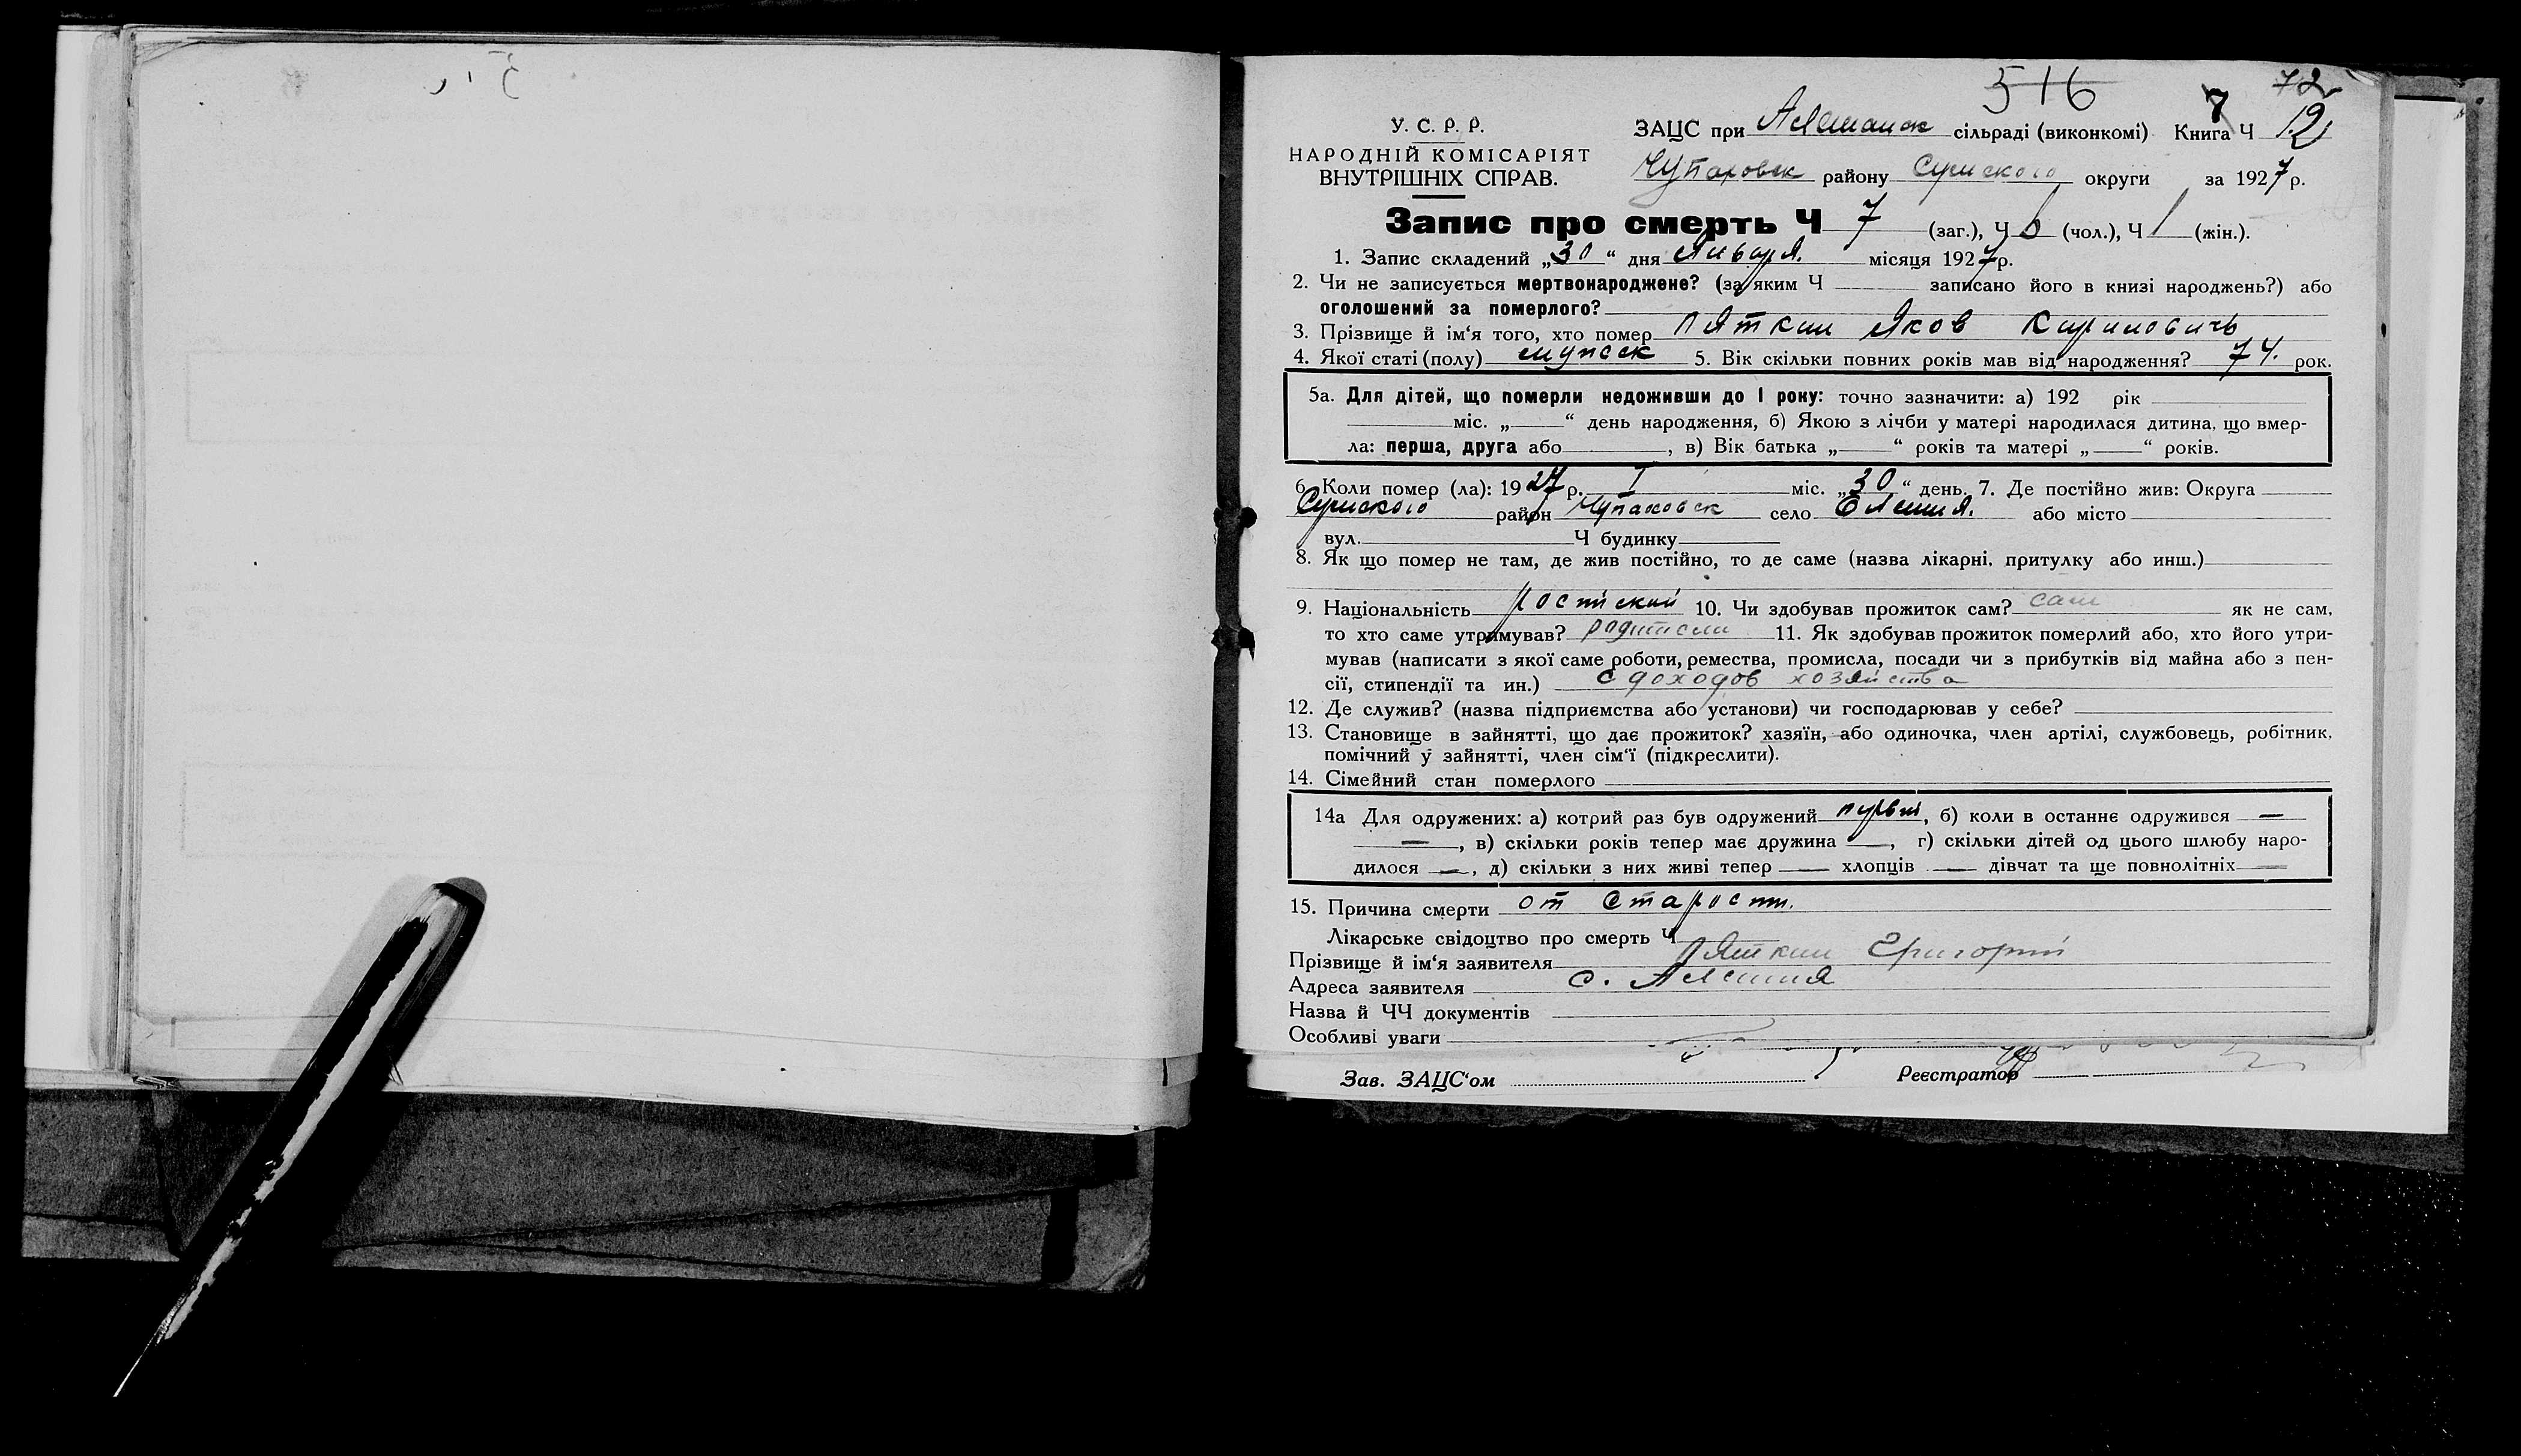 516 72
У. С. Р. Р.
НАРОДНІЙ КОМІСАРІЯТ
ВНУТРІШНІХ СПРАВ.
ЗАЦС при Алешанск сільраді (виконкомі) Книга Ч 7 12
Чупаховск району Сумского округи за 1927 р.
Запис про смерть Ч 7 (заг.), Ч 6 (чол.), Ч 1 (жін.).
1. Запис складений „30“ дня Января. місяця 1927 р.
2. Чи не записується мертвонароджене? (за яким Ч записано його в книзі народжень?) або
оголошений за померлого?
3. Прізвище й ім‘я того, хто помер Пяткин Яков Кирилович
4. Якої статі (полу) мужеск 5. Вік скільки повних років мав від народження? 74. рок.
5а. Для дітей, що померли недоживши до 1 року: точно зазначити: а) 192 рік
міс. „ “ день народження, б) Якою з лічби у матері народилася дитина, що вмер-
ла: перша, друга або , в) Вік батька „ “ років та матері „ “ років.
6. Коли помер (ла): 1927 р. I міс. „30“ день. 7. Де постійно жив: Округа
Сумского район Чупаховск село Олешня. або місто
вул. Ч будинку
8. Як що помер не там, де жив постійно, то де саме (назва лікарні, притулку або инш.)
9. Національність 10. Чи здобував прожиток сам? сам як не сам,
то хто саме утримував? родители 11. Як здобував прожиток померлий або, хто його утри-
мував (написати з якої саме роботи, ремества, промисла, посади чи з прибутків від майна або з пен-
сії, стипендії та ин.) с доходов хозяйства
12. Де служив? (назва підприємства або установи) чи господарював у себе?
13. Становище в зайнятті, що дає прожиток? хазяїн, або одиночка, член артілі, службовець, робітник,
помічний у зайнятті, член сім‘ї (підкреслити).
14. Сімейний стан померлого
14а Для одружених: а) котрий раз був одружений первий, б) коли в останнє одружився —
—, в) скільки років тепер має дружина —, г) скільки дітей од цього шлюбу наро-
дилося —, д) скільки з них живі тепер — хлопців — дівчат та ще повнолітніх —
15. Причина смерти от старости.
Лікарське свідоцтво про смерть Ч
Прізвище й ім‘я заявителя Пяткин Григорий
Адреса заявителя с. Алешня
Назва й ЧЧ документів
Особливі уваги
Зав. ЗАЦС‘ом Реєстратор